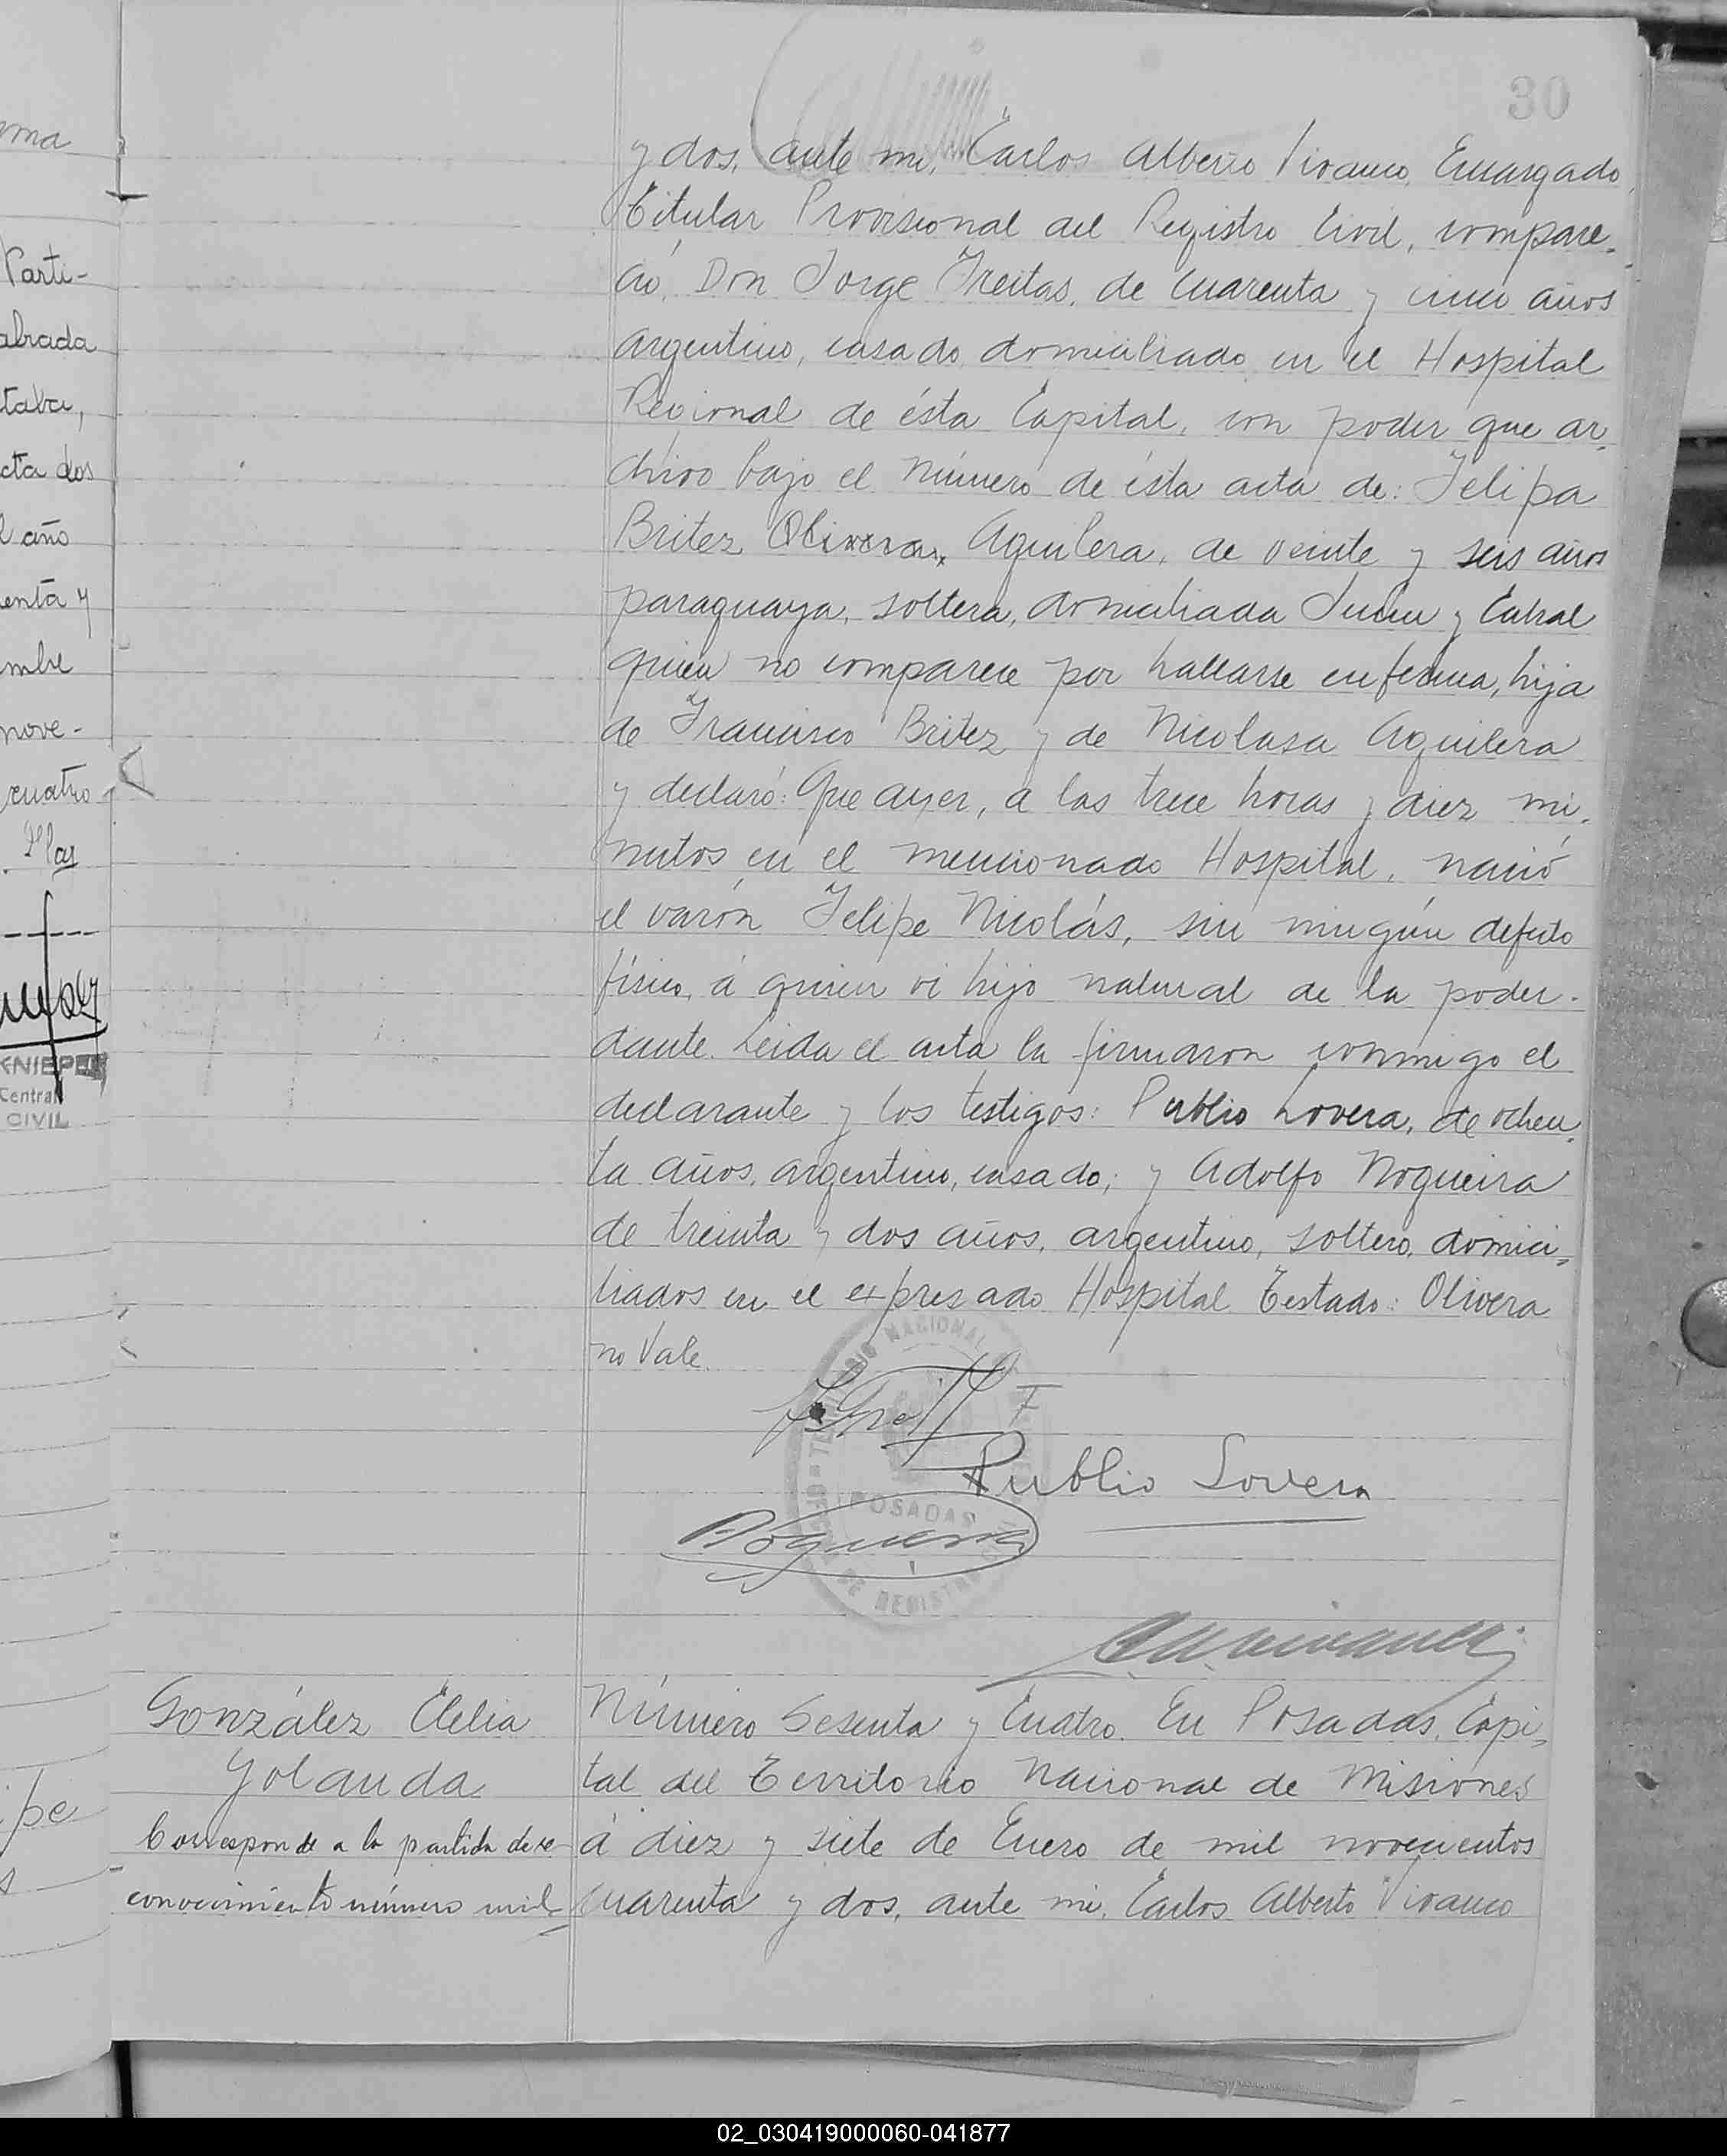 30
y dos, ante mi, Carlos Alberto Vivanco, Encargado
Titular Provisional del Registro Civil, compare-
ció, Don Jorge Freitas, de cuarenta y cinco años
argentino, casado, domiciliado en el Hospital
Regional de ésta Capital, con poder que ar-
chivo bajo el número de ésta acta de: Felipa
Britez Olivera, Aguilera, de veinte y seis años
paraguaya, soltera, domiciliada Junin y Cabral
quien no comparece por hallarse enferma, hija
de Francisco Britez y de Nicolasa Aguilera
y declaró: Que ayer, a las trece horas y diez mi-
nutos en el mencionado Hospital, nació
el varón Felipe Nicolás, sin ningún defecto
físico, á quien vi hijo natural de la poder-
dante. Leida el acta la firmaron conmigo el
declarante y los testigos: Publio Lovera, de ochen-
ta años, argentino, casado; y Adolfo Nogueira
de treinta y dos años, argentino, soltero, domici-
liados en el expresado Hospital Testado: Olivera
no Vale.
Publio Lovera
Nogueira
POSADAS
González Clelia
Yolanda
Corresponde a la partida de re-
conocimiento número mil
Número Sesenta y Cuatro. En Posadas, Capi-
tal del Territorio Nacional de Misiones
á diez y siete de Enero de mil novecientos
cuarenta y dos, ante mi, Carlos Alberto Vivanco
Parti-
año
nove-
cuatro
Central
CIVIL
02_030419000060-041877